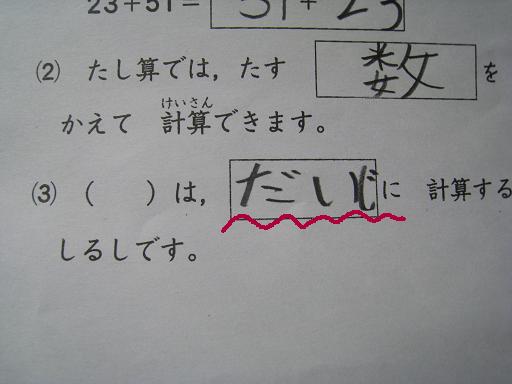 23+51= 51+23
(2) たし算では，たす 数 を
けいさん
かえて 計算できます。
(3) ( )は，だいじに 計算する
しるしです。